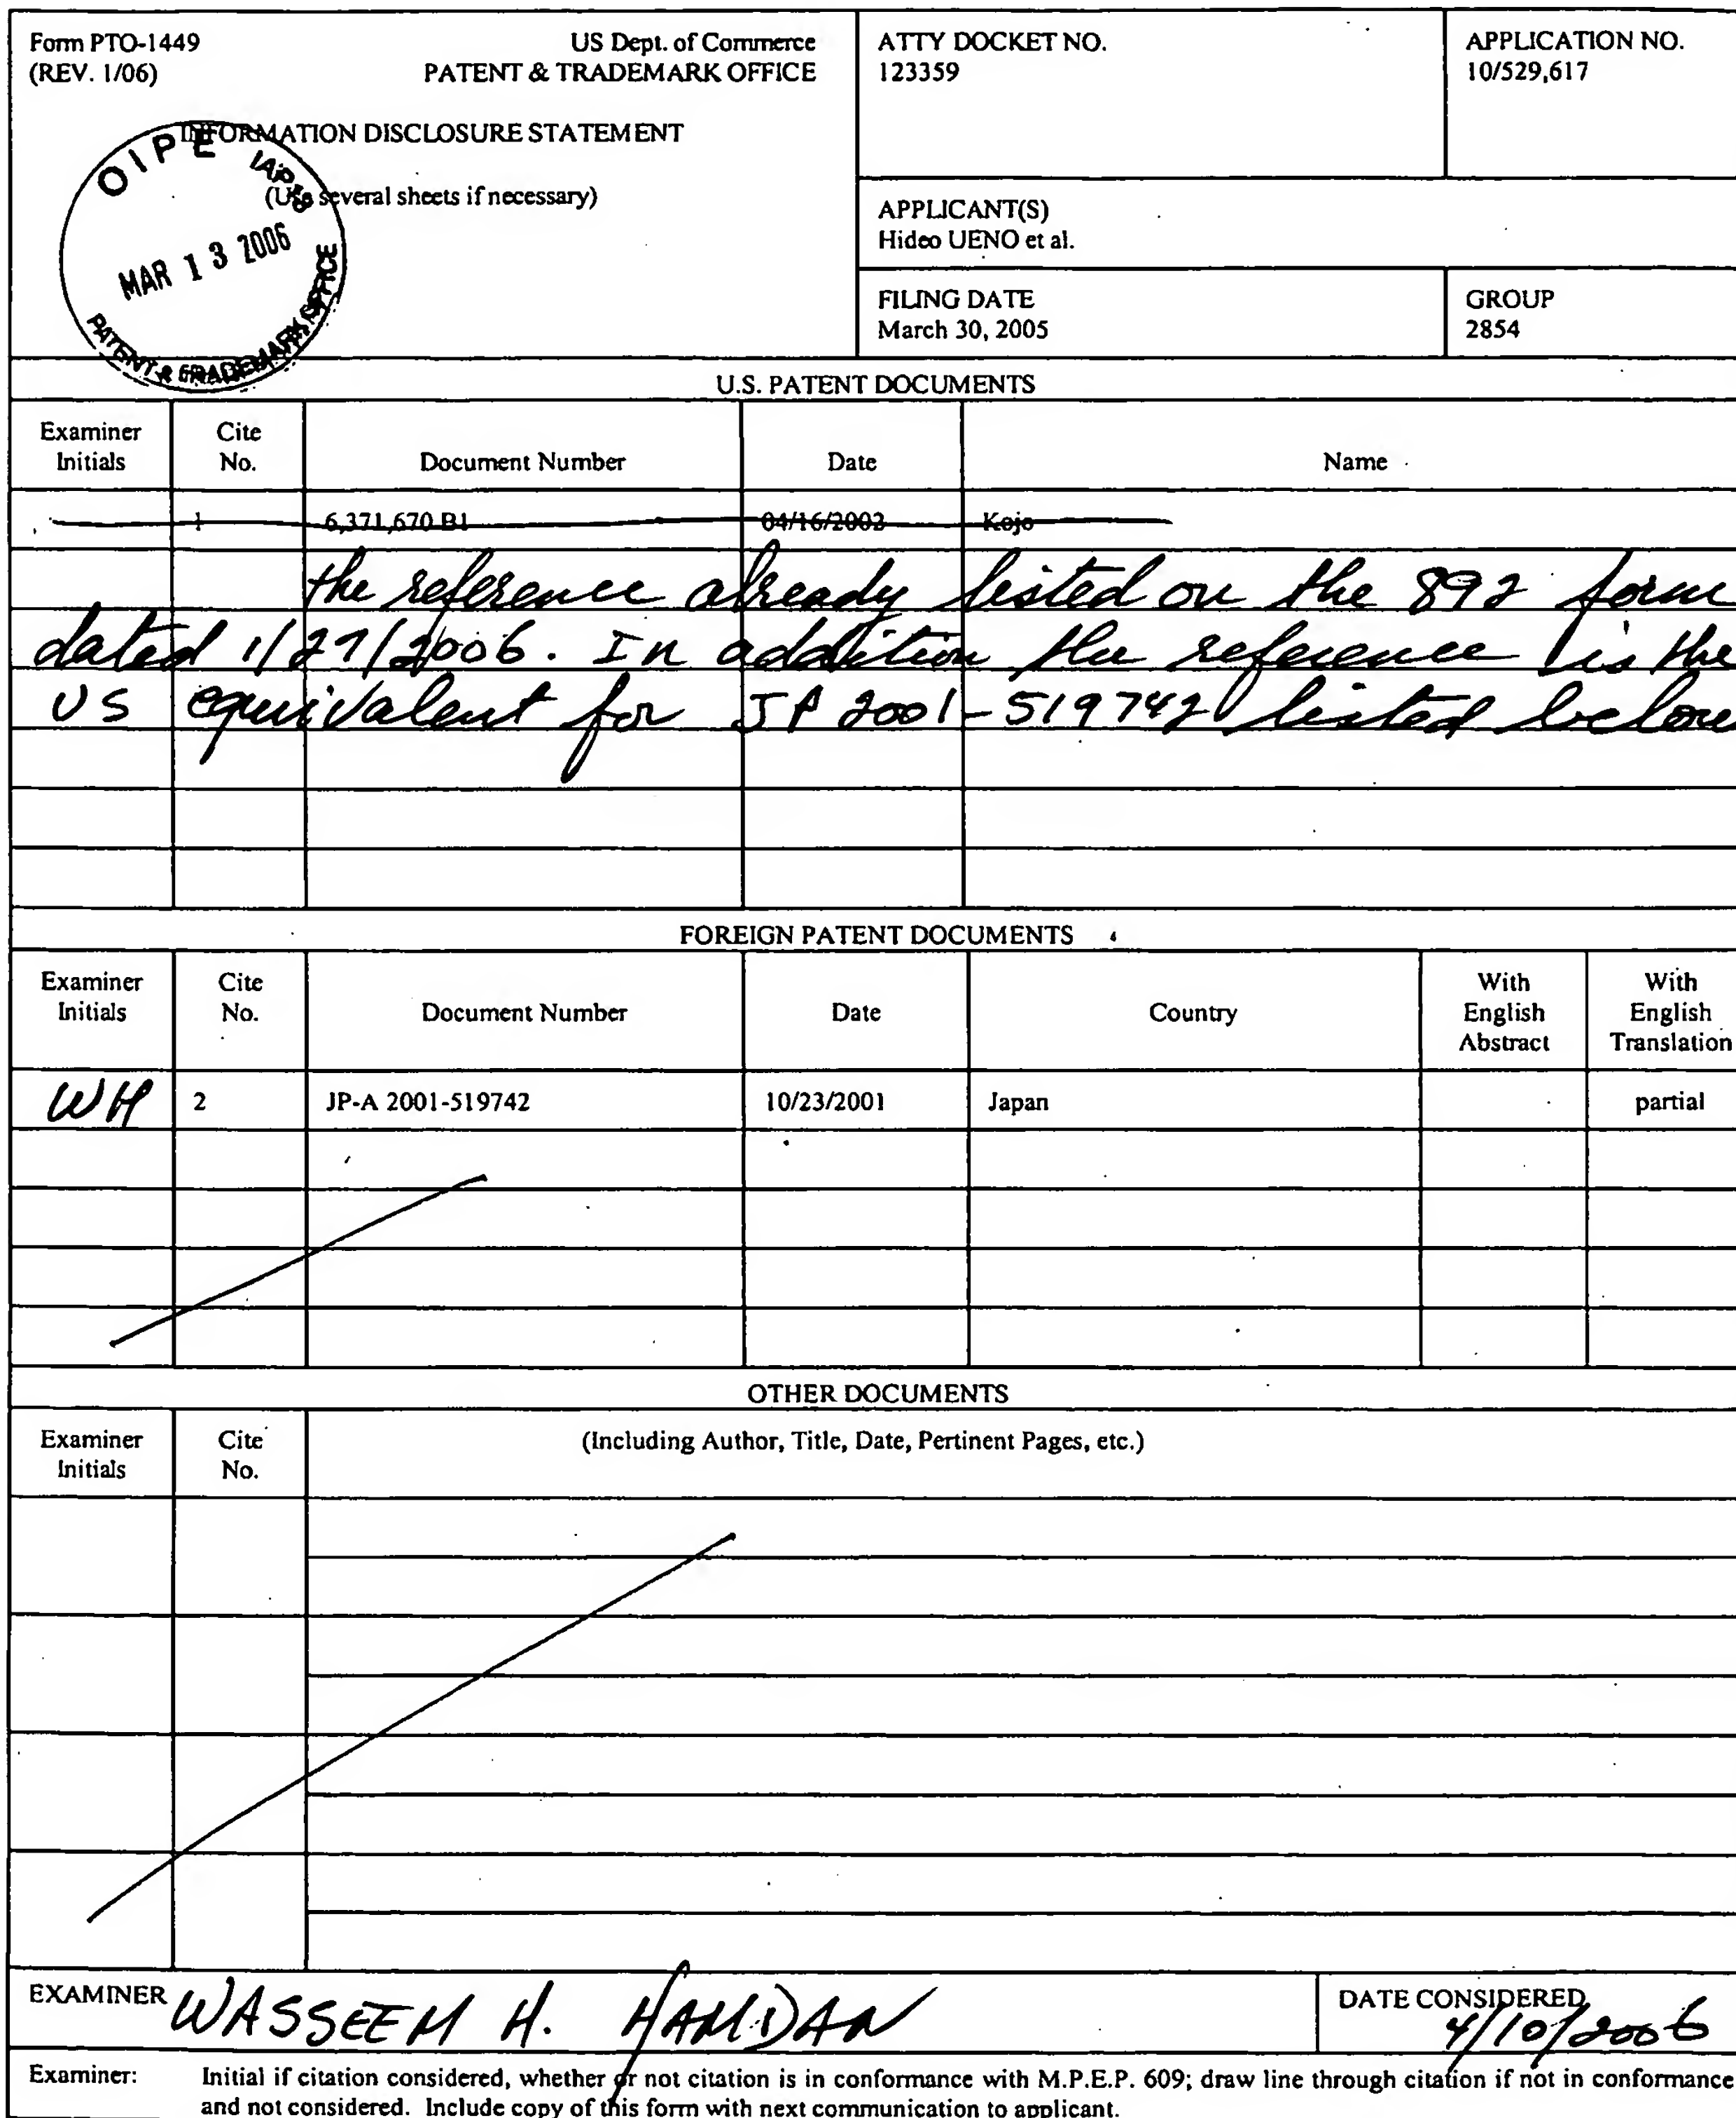 Form PTO-1449 US Dept. of Commerce
(REV. 1/06) PATENT & TRADEMARK OFFICE
INFORMATION DISCLOSURE STATEMENT
(Use several sheets if necessary)
OIPE IAP
MAR 13 2006
PATENT & TRADEMARK OFFICE
ATTY DOCKET NO.
123359
APPLICATION NO.
10/529,617
APPLICANT(S)
Hideo UENO et al.
FILING DATE
March 30, 2005
GROUP
2854
U.S. PATENT DOCUMENTS
Examiner Initials Cite No. Document Number Date Name
1 6,371,670 B1 04/16/2002 Kojo
the reference already listed on the 892 form
dated 1/27/2006. In addition the reference is the
US equivalent for JP 2001-519742 listed below
FOREIGN PATENT DOCUMENTS
Examiner Initials Cite No. Document Number Date Country With English Abstract With English Translation
WH 2 JP-A 2001-519742 10/23/2001 Japan partial
OTHER DOCUMENTS
Examiner Initials Cite No. (Including Author, Title, Date, Pertinent Pages, etc.)
EXAMINER WASSEEM H. HAMDAN
DATE CONSIDERED 4/10/2006
Examiner: Initial if citation considered, whether or not citation is in conformance with M.P.E.P. 609; draw line through citation if not in conformance
and not considered. Include copy of this form with next communication to applicant.